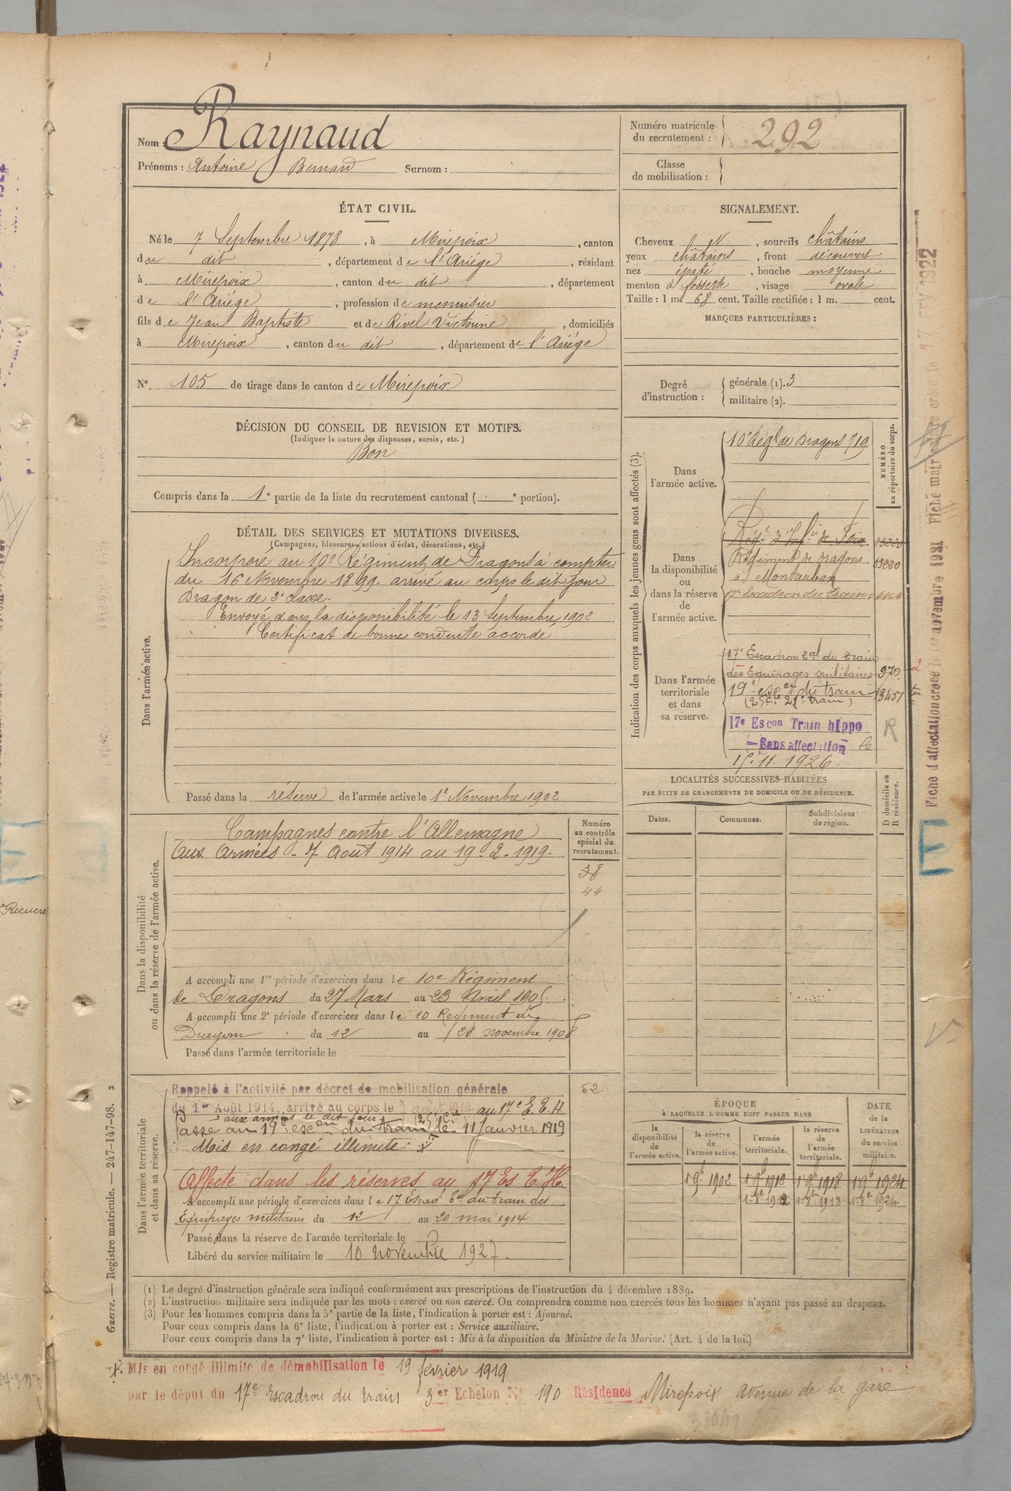 Nom : Raynaud
Prénoms : Antoine Bernard Surnom :
Numéro matricule du recrutement : 292
Classe de mobilisation :
ÉTAT CIVIL.
Né le 7 Septembre 1878, à Mirepoix, canton
du dit, département de l'Ariège, résidant
à Mirepoix, canton du dit, département
de l'Ariège, profession de menuisier
fils de Jean Baptiste et de Rivel Victorine, domiciliés
à Mirepoix, canton du dit, département de l'Ariège
N° 105 de tirage dans le canton de Mirepoix
SIGNALEMENT.
Cheveux, sourcils châtains
yeux châtains, front découvert
nez épaté, bouche moyenne
menton à fossette, visage ovale
Taille : 1 m. 68 cent. Taille rectifiée : 1 m. cent.
MARQUES PARTICULIÈRES :
Degré d'instruction : générale (1). 3
militaire (2).
DÉCISION DU CONSEIL DE REVISION ET MOTIFS.
(Indiquer la nature des dispenses, sursis, etc.)
Bon
Compris dans la 1e partie de la liste du recrutement cantonal ( e portion).
DÉTAIL DES SERVICES ET MUTATIONS DIVERSES.
(Campagnes, blessures, actions d'éclat, décorations, etc.)
Dans l'armée active.
Incorporé au 10e Régiment de Dragons à compter
du 16 Novembre 1899 arrivé au corps le dit jour
Dragon de 2e classe.
Envoyé dans la disponibilité le 13 Septembre 1902
Certificat de bonne conduite accordé
Passé dans la réserve de l'armée active le 1er Novembre 1902
Indication des corps auxquels les jeunes gens sont affectés (3).
NUMÉRO au répertoire du corps.
Dans l'armée active.
10e Régt de Dragons 719
Dans la disponibilité ou dans la réserve de l'armée active.
Régt d'Infie de Foix
Régiment de dragons
à Montauban
Dans l'armée territoriale et dans sa réserve.
17e Escadron Tal du train
des Equipages militaires 970
19e escon du train 13451
17e Escon Train hippo
Sans affectation
15.11.1926.
R
LOCALITÉS SUCCESSIVES HABITÉES
PAR SUITE DE CHANGEMENTS DE DOMICILE OU DE RÉSIDENCE.
Dates. Communes. Subdivisions de région. D domicile ou R résidence.
Dans la disponibilité ou dans la réserve de l'armée active.
Campagnes contre l'Allemagne
Aux Armées - 7 Août 1914 au 19.2.1919.
Numéro au contrôle spécial du recrutement.
38
44
A accompli une 1re période d'exercices dans le 10e Régiment
de Dragons du 27 Mars au 23 Avril 1905.
A accompli une 2e période d'exercices dans le 10 Régiment de
Dragons du 12 au 28 novembre 1908
Passé dans l'armée territoriale le
Dans l'armée territoriale et dans sa réserve.
Rappelé à l'activité par décret de mobilisation générale
du 1er Août 1914, arrivé au corps le au 17e E.T.H
aux armées le dit jour
Passé au 19e escon du train le 11 Janvier 1919
Mis en congé illimité
Affecté dans les réserves au 17 Es T. H.
A accompli une période d'exercices dans le 17 Escad Tal du train des
Equipages militaires du 12 au 20 mai 1914
Passé dans la réserve de l'armée territoriale le
Libéré du service militaire le 10 novembre 1927.
62
ÉPOQUE
À LAQUELLE L'HOMME DOIT PASSER DANS
la disponibilité de l'armée active. la réserve de l'armée active. l'armée territoriale. la réserve de l'armée territoriale.
DATE de la LIBÉRATION du service militaire.
1 9e 1902 1 9e 1912 1 9e 1918 1 9e 1924
1 8e 1912 1 8e 1918 1 8e 1924
(1) Le degré d'instruction générale sera indiqué conformément aux prescriptions de l'instruction du 4 décembre 1889.
(2) L'instruction militaire sera indiquée par les mots : exercé ou non exercé. On comprendra comme non exercés tous les hommes n'ayant pas passé au drapeau.
(3) Pour les hommes compris dans la 5e partie de la liste, l'indication à porter est : Ajourné.
Pour ceux compris dans la 6e liste, l'indication à porter est : Service auxiliaire.
Pour ceux compris dans la 7e liste, l'indication à porter est : Mis à la disposition du Ministre de la Marine. (Art. 4 de la loi.)
Mis en congé illimité de démobilisation le 19 février 1919
par le dépôt du 17e Escadron du train 3er Echelon N° 190 Résidence Mirepoix avenue de la gare
Guerre. — Registre matricule. — 247-147-98. 2